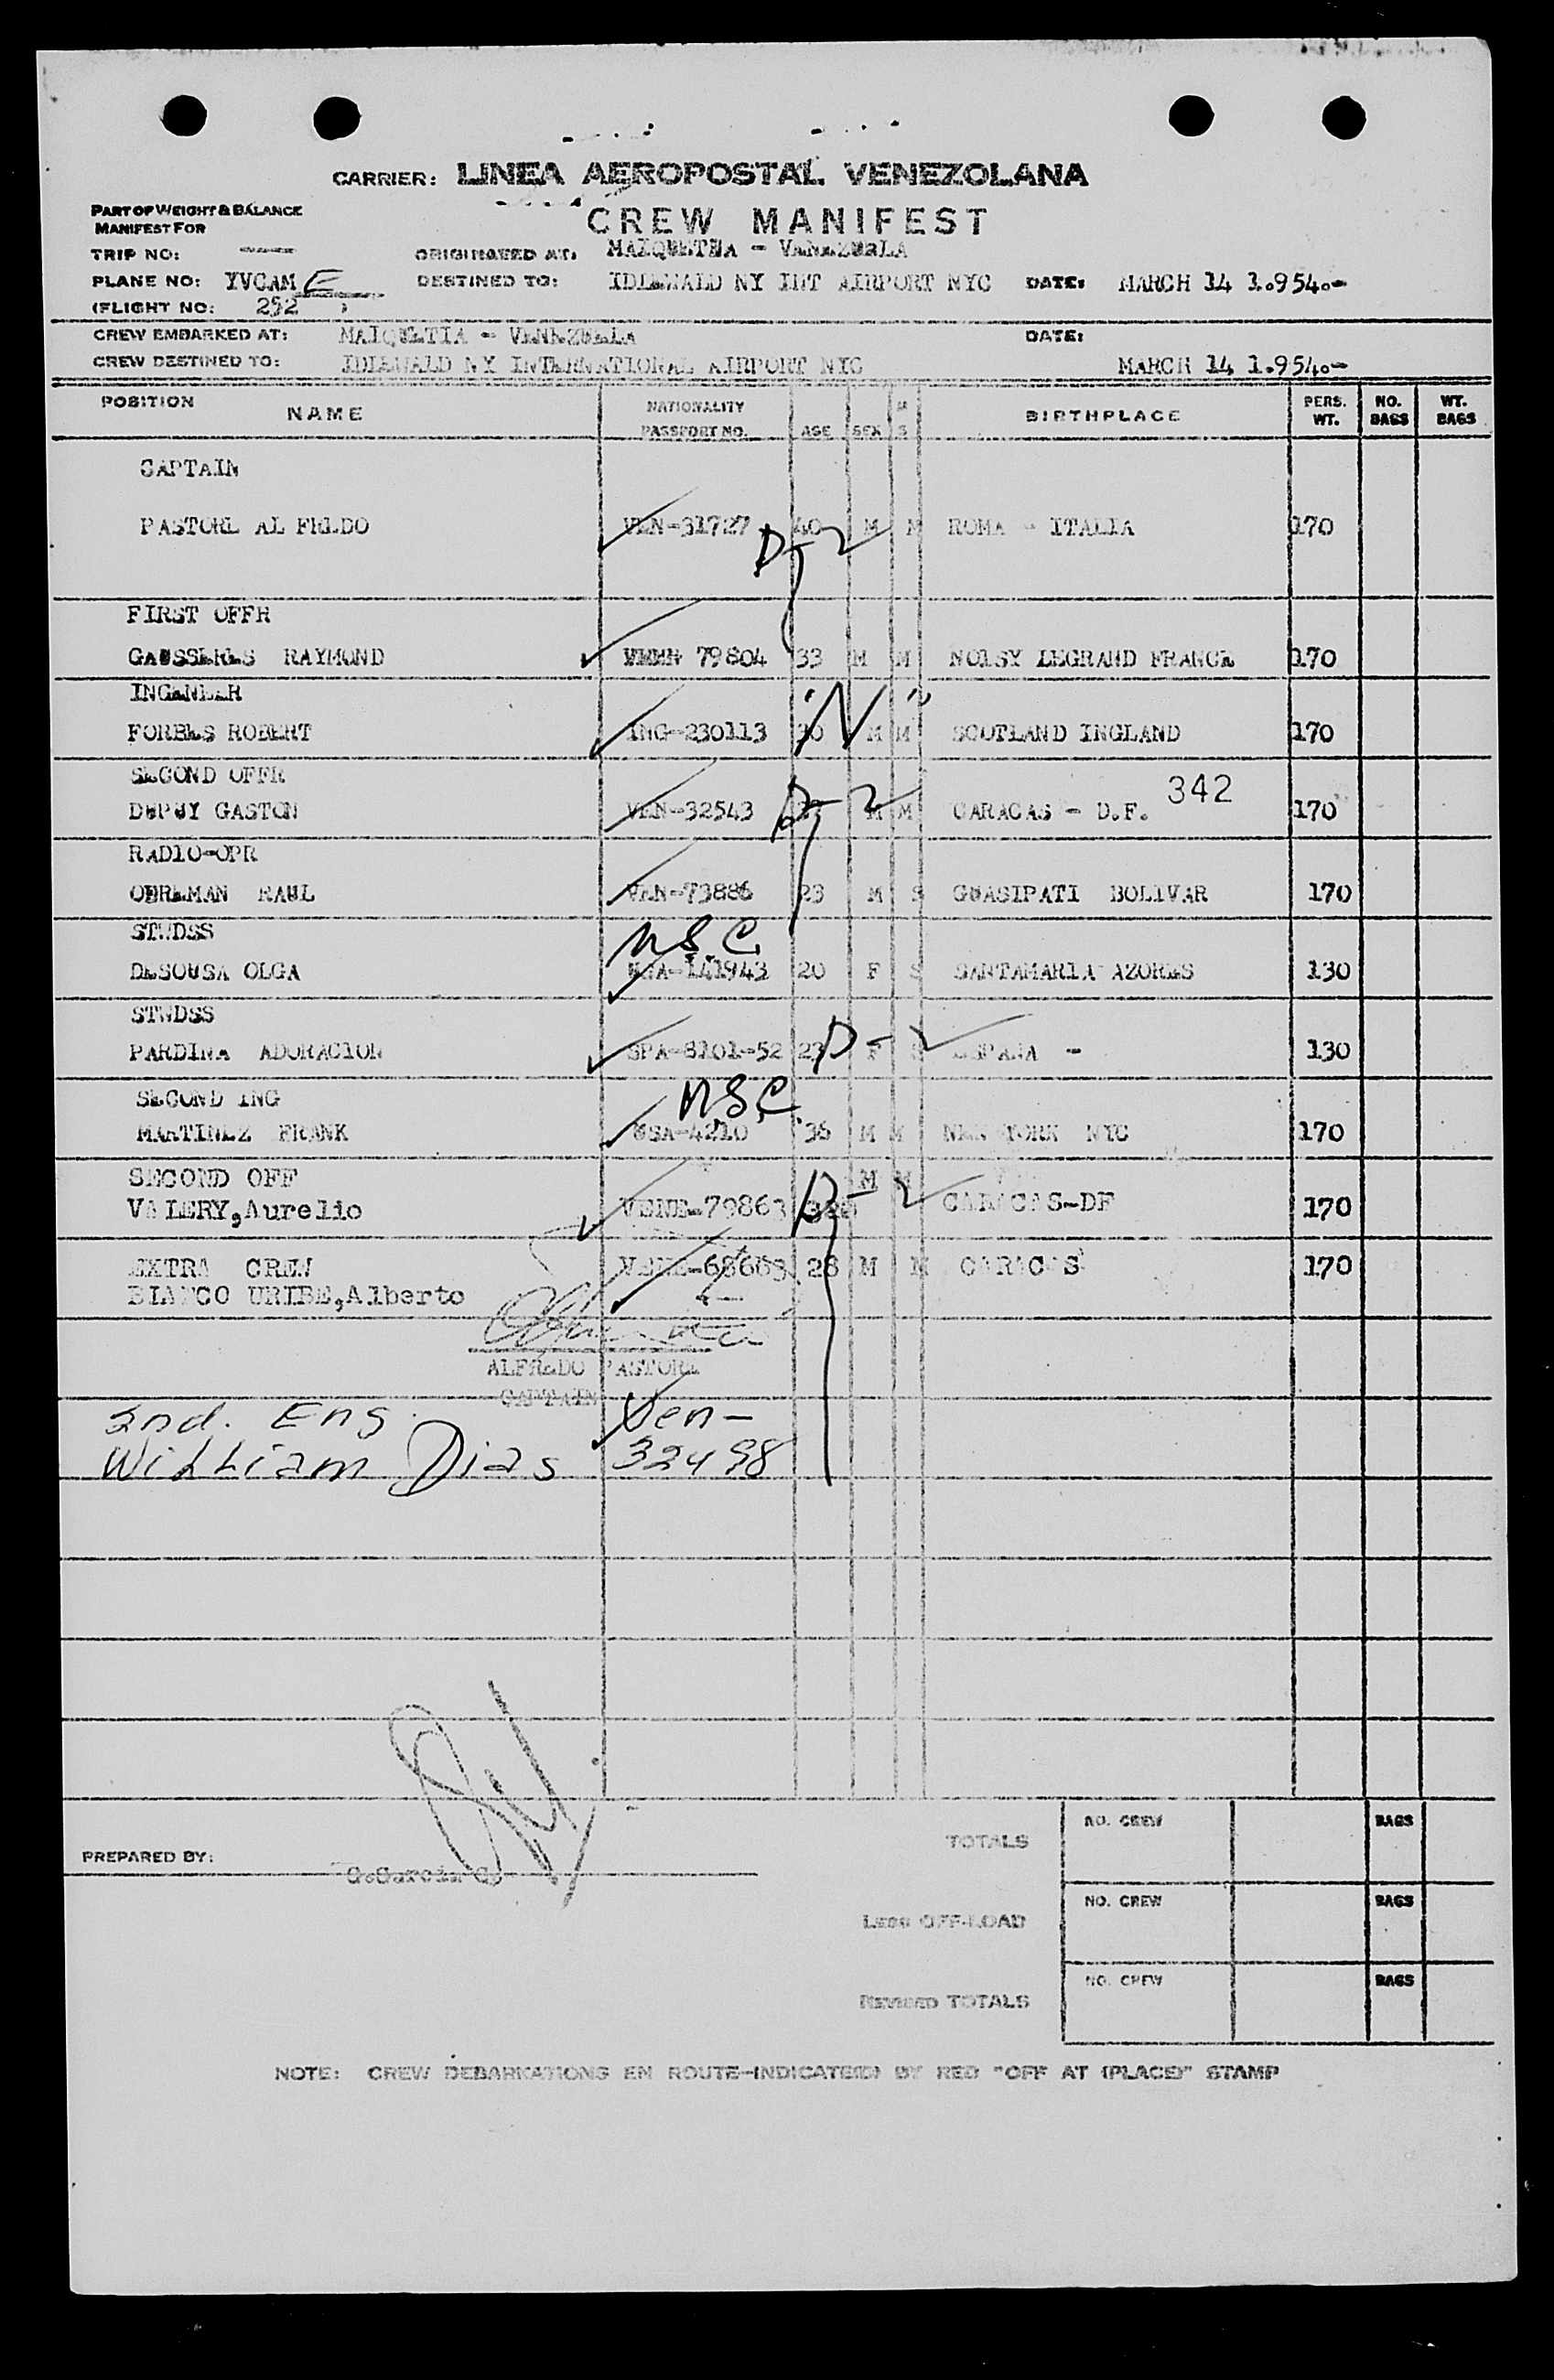 CARRIER: LINEA AEROPOSTAL VENEZOLANA
PART OF WEIGHT & BALANCE
MANIFEST FOR
CREW MANIFEST
TRIP NO: ORIGINATED AT: MAIQUETEA - VENEZUELA
PLANE NO: YVCAM E DESTINED TO: IDLEWALD NY INT AIRPORT NYC DATE: MARCH 14 1.954.-
(FLIGHT NO: 252 )
CREW EMBARKED AT: MAIQUETIA - VENEZUELA DATE:
CREW DESTINED TO: IDLEWALD NY INTERNATIONAL AIRPORT NYC MARCH 14 1.954.-
POSITION NAME NATIONALITY PASSPORT NO. AGE SEX M S BIRTHPLACE PERS. WT. NO. BAGS WT. BAGS
CAPTAIN
PASTORE AL FREDO VEN-31727 40 M M ROMA - ITALIA 170
D-2
FIRST OFFR
GAUSSERES RAYMOND 79804 33 M M NOISY LEGRAND FRANCE 170
INGENEER
FORBES ROBERT ING-230113 30 M M SCOTLAND INGLAND 170
"N"
SECOND OFFR
DUPUY GASTON VEN-32543 M M CARACAS - D.F. 342 170
D-2
RADIO-OPR
OERLMAN RAUL VEN-73886 23 M S GUASIPATI BOLIVAR 170
STWDSS
USC
DESOUSA OLGA USA-141943 20 F S SANTAMARIA AZORES 130
STWDSS
PARDINA ADORACION SPA-8101-52 23 F S ESPANA - 130
D-2
SECOND ING
USC
MARTINEZ FRANK USA-4210 36 M M NEW YORK NYC 170
SECOND OFF M M
VALERY,Aurelio VENE-79863 CARACAS-DF 170
D-2
EXTRA CREW VENE-68663 28 M M CARACAS 170
BIANCO URIBE,Alberto
ALFREDO PASTORE
CAPTAIN
2nd. Eng. Ven-
William Dias 32498
TOTALS NO. CREW BAGS
PREPARED BY: G.Garcia G.
LESS OFF-LOAD NO. CREW BAGS
REVISED TOTALS NO. CREW BAGS
NOTE: CREW DEBARKATIONS EN ROUTE-INDICATE(D) BY RED "OFF AT (PLACE)" STAMP